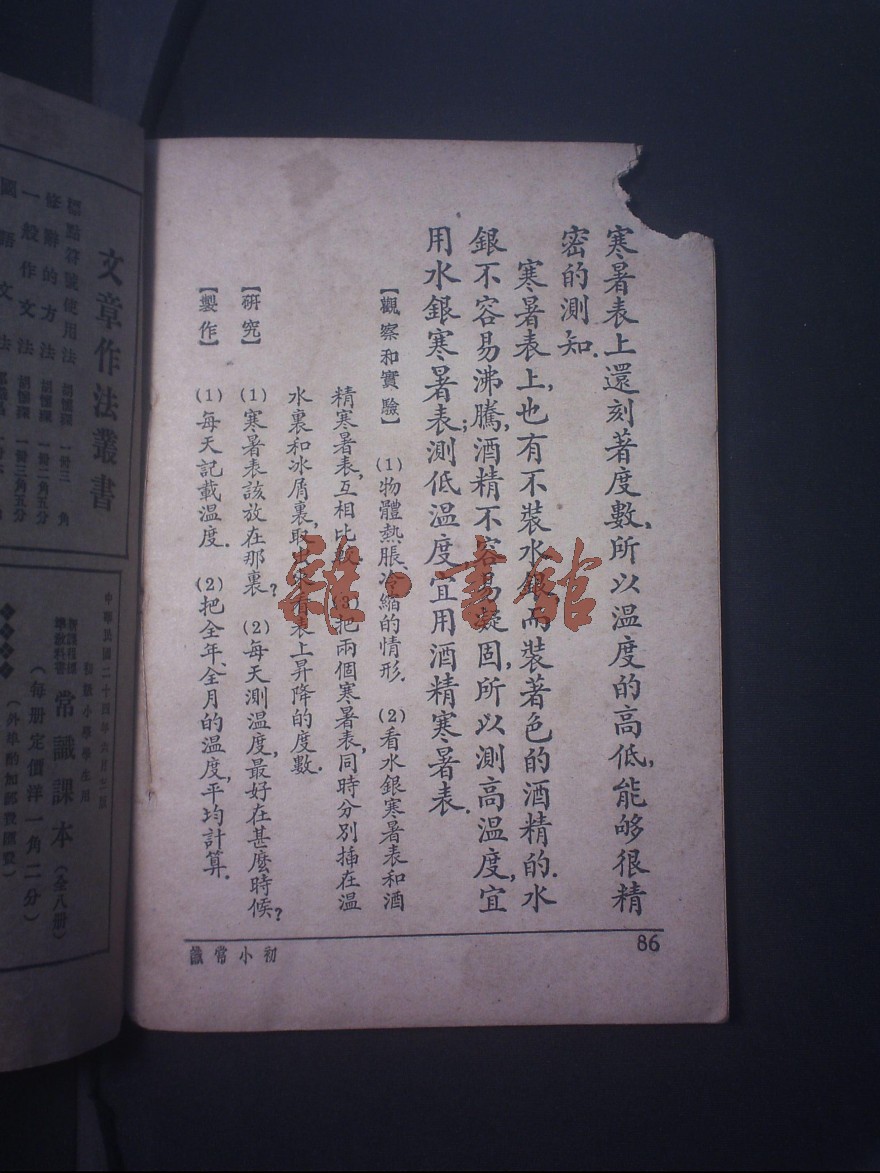 寒暑表上還刻著度數,所以温度的高低,能够很精
密的測知.
寒暑表上,也有不裝水銀,而裝著色的酒精的.水
銀不容易沸騰,酒精不容易凝固,所以測高温度,宜
用水銀寒暑表;測低温度,宜用酒精寒暑表.
【觀察和實驗】 (1)物體熱脹冷縮的情形. (2)看水銀寒暑表和酒
精寒暑表,互相比較. (3)把兩個寒暑表,同時分別插在温
水裏和冰屑裏,取出來看表上昇降的度數.
【研究】 (1)寒暑表該放在那裏? (2)每天測温度,最好在甚麼時候?
【製作】 (1)每天記載温度. (2)把全年、全月的温度,平均計算.
86
初小常識
雜·書館
文章作法叢書
標點符號使用法 胡懷琛 一冊三角
修辭的方法 胡懷琛 一冊二角五分
一般作文法 胡懷琛 一冊三角五分
國語文法
中華民國二十四年六月
初級小學學生用
常識課本 (全八册)
(每册定價洋一角二分)
(外埠酌加郵費匯費)